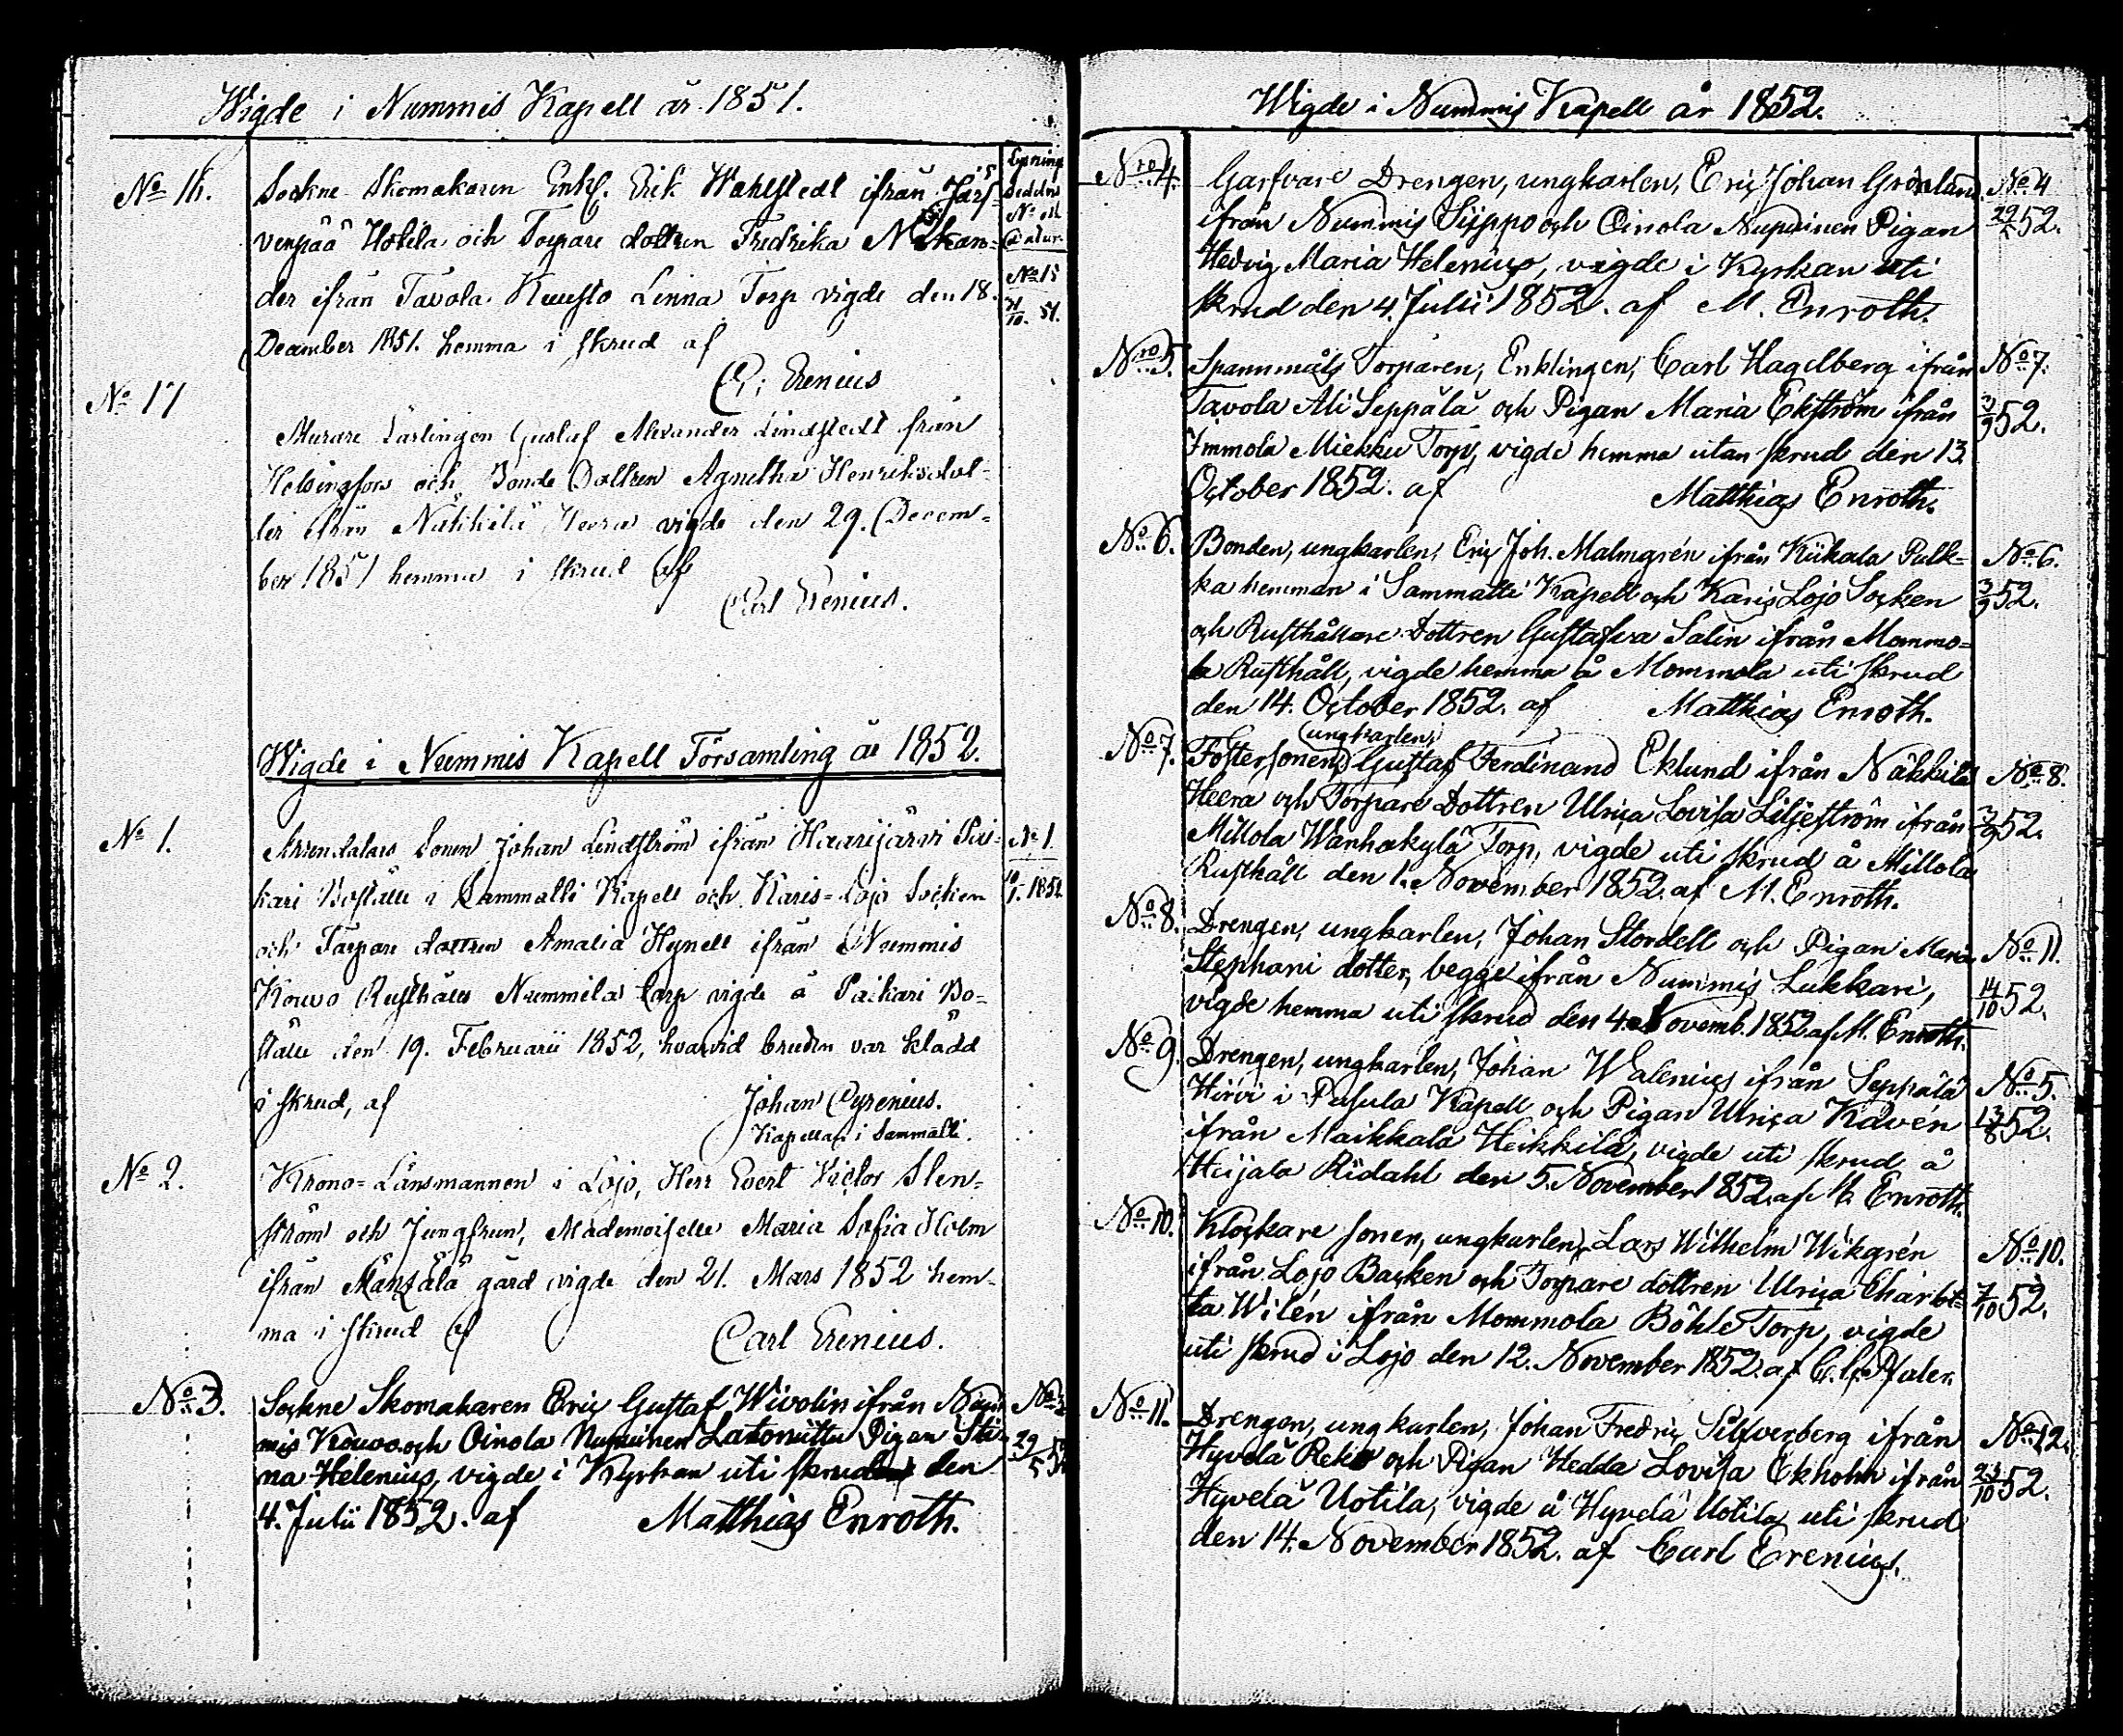 Wigde i Nummis Kapell år 1851.
Lysnings
Sedelns
No och
Datum
No 16.
Sockne Skomakaren Enkl. Erik Wahlstedt ifrån Järf-
venpää Hotila och Torpare dottren Fredrika Nikan-
der ifrån Tavola Kuusto Linna Torp vigde den 18.
December 1851. hemma i skrud af
C: Erenius
No 15
51.
No 17
Murare Lärlingen Gustaf Alexander Lindstedt från
Helsingfors och Bonde Dottren Agnetha Henriksdot-
ter ifrån Näkkilä Heera vigde den 29. Decem-
ber 1851 hemma i skrud af
Carl Erenius.
Wigde i Nummis Kapell Församling år 1852.
No 1.
Arrendators Sonen Johan Lindström ifrån Haarijärvi Pai-
kari Boställe i Sammatti Kapell och Karis-Lojo Socken
och Torpare dottren Amalia Hynell ifrån Nummis
Kouvo Rusthålls Nummela torp vigde å Paikari Bo-
ställe den 19. Februarii 1852, hvarvid bruden var klädd
i skrud, af Johan Cyrenius.
Kapellan i Sammatti.
No 1.
10/1. 1852
No 2.
Krono-Länsmannen i Lojo, Herr Evert Victor Sten-
ström och Jungfrun, Mademoiselle Maria Sofia Holm
ifrån gård vigde den 21. Mars 1852 hem-
ma i skrud af Carl Erenius.
No 3.
Sockne Skomakaren Eric Gustaf Wivolin ifrån Num-
mis Kouvo och Oinola Nupuinen Pigan Sti-
na Helenius, vigde i Kyrkan uti skrud den
4. Julii 1852. af Matthias Enroth.
No 3
29/5 52
Wigde i Nummis Kapell år 1852.
Nro 4.
Garfvare Drengen, ungkarlen, Eric Johan Grönlund
ifrån Nummis Siippo och Oinola Nupuinen Pigan
Hedvig Maria Helenius, vigde i Kyrkan uti
skrud den 4. Julii 1852. af M. Enroth.
No 4
29/5 52.
Nro 5.
Spannmåls Torparen, Enklingen, Carl Hagelberg ifrån
Tavola Ali Seppälä och Pigan Maria Ekström ifrån
Immola Miekku Torp, vigde hemma utan skrud den 13.
October 1852. af Matthias Enroth.
No 7.
3/9 52.
No 6.
Bonden, ungkarlen, Eric Joh. Malmgrén ifrån Kiikala Pulk-
ka hemman i Sammatti Kapell och Karis Lojo Socken
och Rusthållare Dottren Gustafva Salin ifrån Mommo-
la Rusthåll, vigde hemma å Mommola uti skrud
den 14. October 1852. af Matthias Enroth.
No 6.
3/9 52.
No 7.
ungkarlen,
Fostersonen, Gustaf Ferdinand Eklund ifrån Näkkilä
Heera och Torpare Dottren Ulrica Lovisa Liljeström ifrån
Millola Wanhakylä Torp, vigde uti skrud å Millola
Rusthåll den 1. November 1852. af M. Enroth.
No 8.
3/9 52.
No 8.
Drengen, ungkarlen, Johan Stordell och Pigan Maria
Stephani dotter, begge ifrån Nummis Lukkari,
vigde hemma uti skrud den 4. Novemb. 1852 af M. Enroth.
No 11.
14/10 52.
No 9.
Drengen, ungkarlen, Johan Walenius ifrån Seppälä
Hirvi i Pusula Kapell och Pigan Ulrica Kavén
ifrån Maikkala Heikkilä, vigde uti skrud å
Heijala Ridahl den 5. November 1852. af M. Enroth.
No 5.
13/8 52.
No 10.
Klockare sonen, ungkarlen, Lars Wilhelm Wikgrén
ifrån Lojo Backen och Torpare dottren Ulrica Charlot-
ta Wilén ifrån Mommola Böhle Torp, vigde
uti skrud i Lojo den 12. November 1852. af
No 10.
7/10 52.
No 11.
Drengen, ungkarlen, Johan Fredric Silfverberg ifrån
Hyvelä Reko och Pigan Hedda Lovisa Ekholm ifrån
Hyvelä Uotila, vigde å Hyvelä Uotila uti skrud
den 14. November 1852. af Carl Erenius.
No 12.
23/10 52.